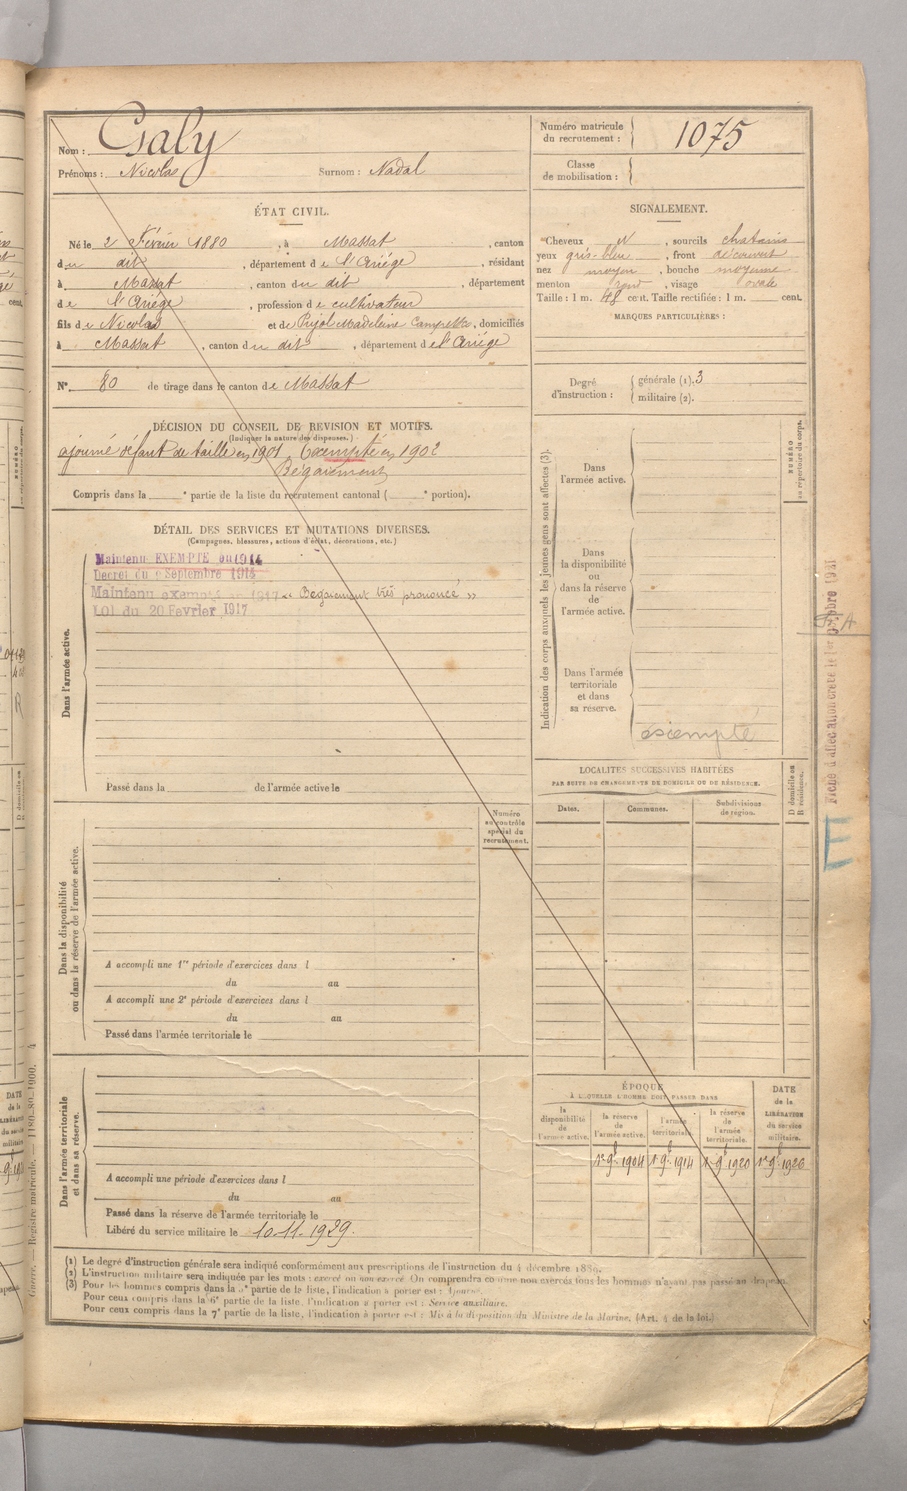 Nom : Galy
Prénoms : Nicolas Surnom : Nadal
Numéro matricule du recrutement : 1075
Classe de mobilisation :
ÉTAT CIVIL.
Né le 2 Février 1880, à Massat, canton
du dit, département de l'Ariège, résidant
à Massat, canton du dit, département
de l'Ariège, profession de cultivateur
fils de Nicolas et de Pujol Madeleine, domiciliés
à Massat, canton du dit, département de l'Ariège
N° 80 de tirage dans le canton de Massat
SIGNALEMENT.
Cheveux N, sourcils chatains
yeux gris-bleu, front découvert
nez moyen, bouche moyenne
menton rond, visage ovale
Taille : 1 m. 48 cent. Taille rectifiée : 1 m. cent.
MARQUES PARTICULIÈRES :
Degré d'instruction : générale (1). 3
militaire (2).
DÉCISION DU CONSEIL DE REVISION ET MOTIFS.
(Indiquer la nature des dispenses.)
ajourné défaut de taille en 1901 Exempté en 1902
Bégaiement
Compris dans la e partie de la liste du recrutement cantonal ( e portion).
DÉTAIL DES SERVICES ET MUTATIONS DIVERSES.
(Campagnes, blessures, actions d'éclat, décorations, etc.)
Dans l'armée active.
Maintenu EXEMPTÉ en 1914
Décret du 9 Septembre 1914
Maintenu exempté en 1917 « Bégaiement très prononcé »
LOI du 20 Fevrier 1917
Passé dans la de l'armée active le
Indication des corps auxquels les jeunes gens sont affectés (3).
NUMÉRO au répertoire du corps.
Dans l'armée active.
Dans la disponibilité ou dans la réserve de l'armée active.
Dans l'armée territoriale et dans sa réserve.
exempté
Fiche d'affectation créée le 1er octobre 1931
LOCALITÉS SUCCESSIVES HABITÉES
PAR SUITE DE CHANGEMENTS DE DOMICILE OU DE RÉSIDENCE.
Dates. Communes. Subdivisions de région. D domicile ou R résidence.
Dans la disponibilité ou dans la réserve de l'armée active.
Numéro au contrôle spécial du recrutement.
A accompli une 1re période d'exercices dans l
du au
A accompli une 2e période d'exercices dans l
du au
Passé dans l'armée territoriale le
Dans l'armée territoriale et dans sa réserve.
A accompli une période d'exercices dans l
du au
Passé dans la réserve de l'armée territoriale le
Libéré du service militaire le 10-11-1929.
ÉPOQUE
À LAQUELLE L'HOMME DOIT PASSER DANS
la disponibilité de l'armée active.
la réserve de l'armée active.
l'armée territoriale.
la réserve de l'armée territoriale.
DATE de la LIBÉRATION du service militaire.
1er 9bre 1904 1er 9bre 1914 1er 9bre 1920 1er 9bre 1926
(1) Le degré d'instruction générale sera indiqué conformément aux prescriptions de l'instruction du 4 décembre 1889.
(2) L'instruction militaire sera indiquée par les mots : exercé ou non exercé. On comprendra comme non exercés tous les hommes n'ayant pas passé au drapeau.
(3) Pour les hommes compris dans la 5e partie de la liste, l'indication à porter est : Ajourné.
Pour ceux compris dans la 6e partie de la liste, l'indication à porter est : Service auxiliaire.
Pour ceux compris dans la 7e partie de la liste, l'indication à porter est : Mis à la disposition du Ministre de la Marine. (Art. 4 de la loi.)